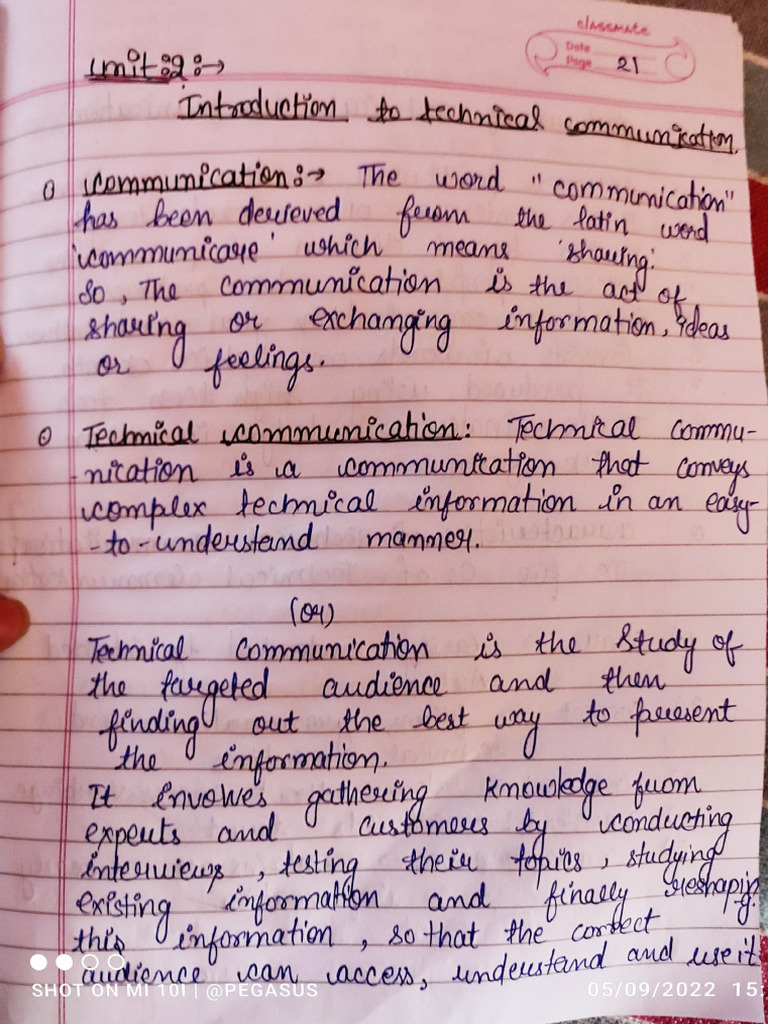 classmate
Date
Page 21
Unit:2:→
Introduction to technical communication.
Communication:→ The word "communication"
has been derieved from the latin word
'communicare' which means 'sharing'.
So, The communication is the act of
sharing or exchanging information, ideas
or feelings.
Technical communication: Technical commu-
-nication is a communication that conveys
complex technical information in an easy-
-to-understand manner.
(or)
Technical communication is the study of
the targeted audience and then
finding out the best way to present
the information.
It involves gathering knowledge from
experts and customers by conducting
interviews, testing their topics, studying
existing information and finally reshaping
this information, so that the correct
audience can access, understand and use it
SHOT ON MI 10I | @PEGASUS
05/09/2022 15: